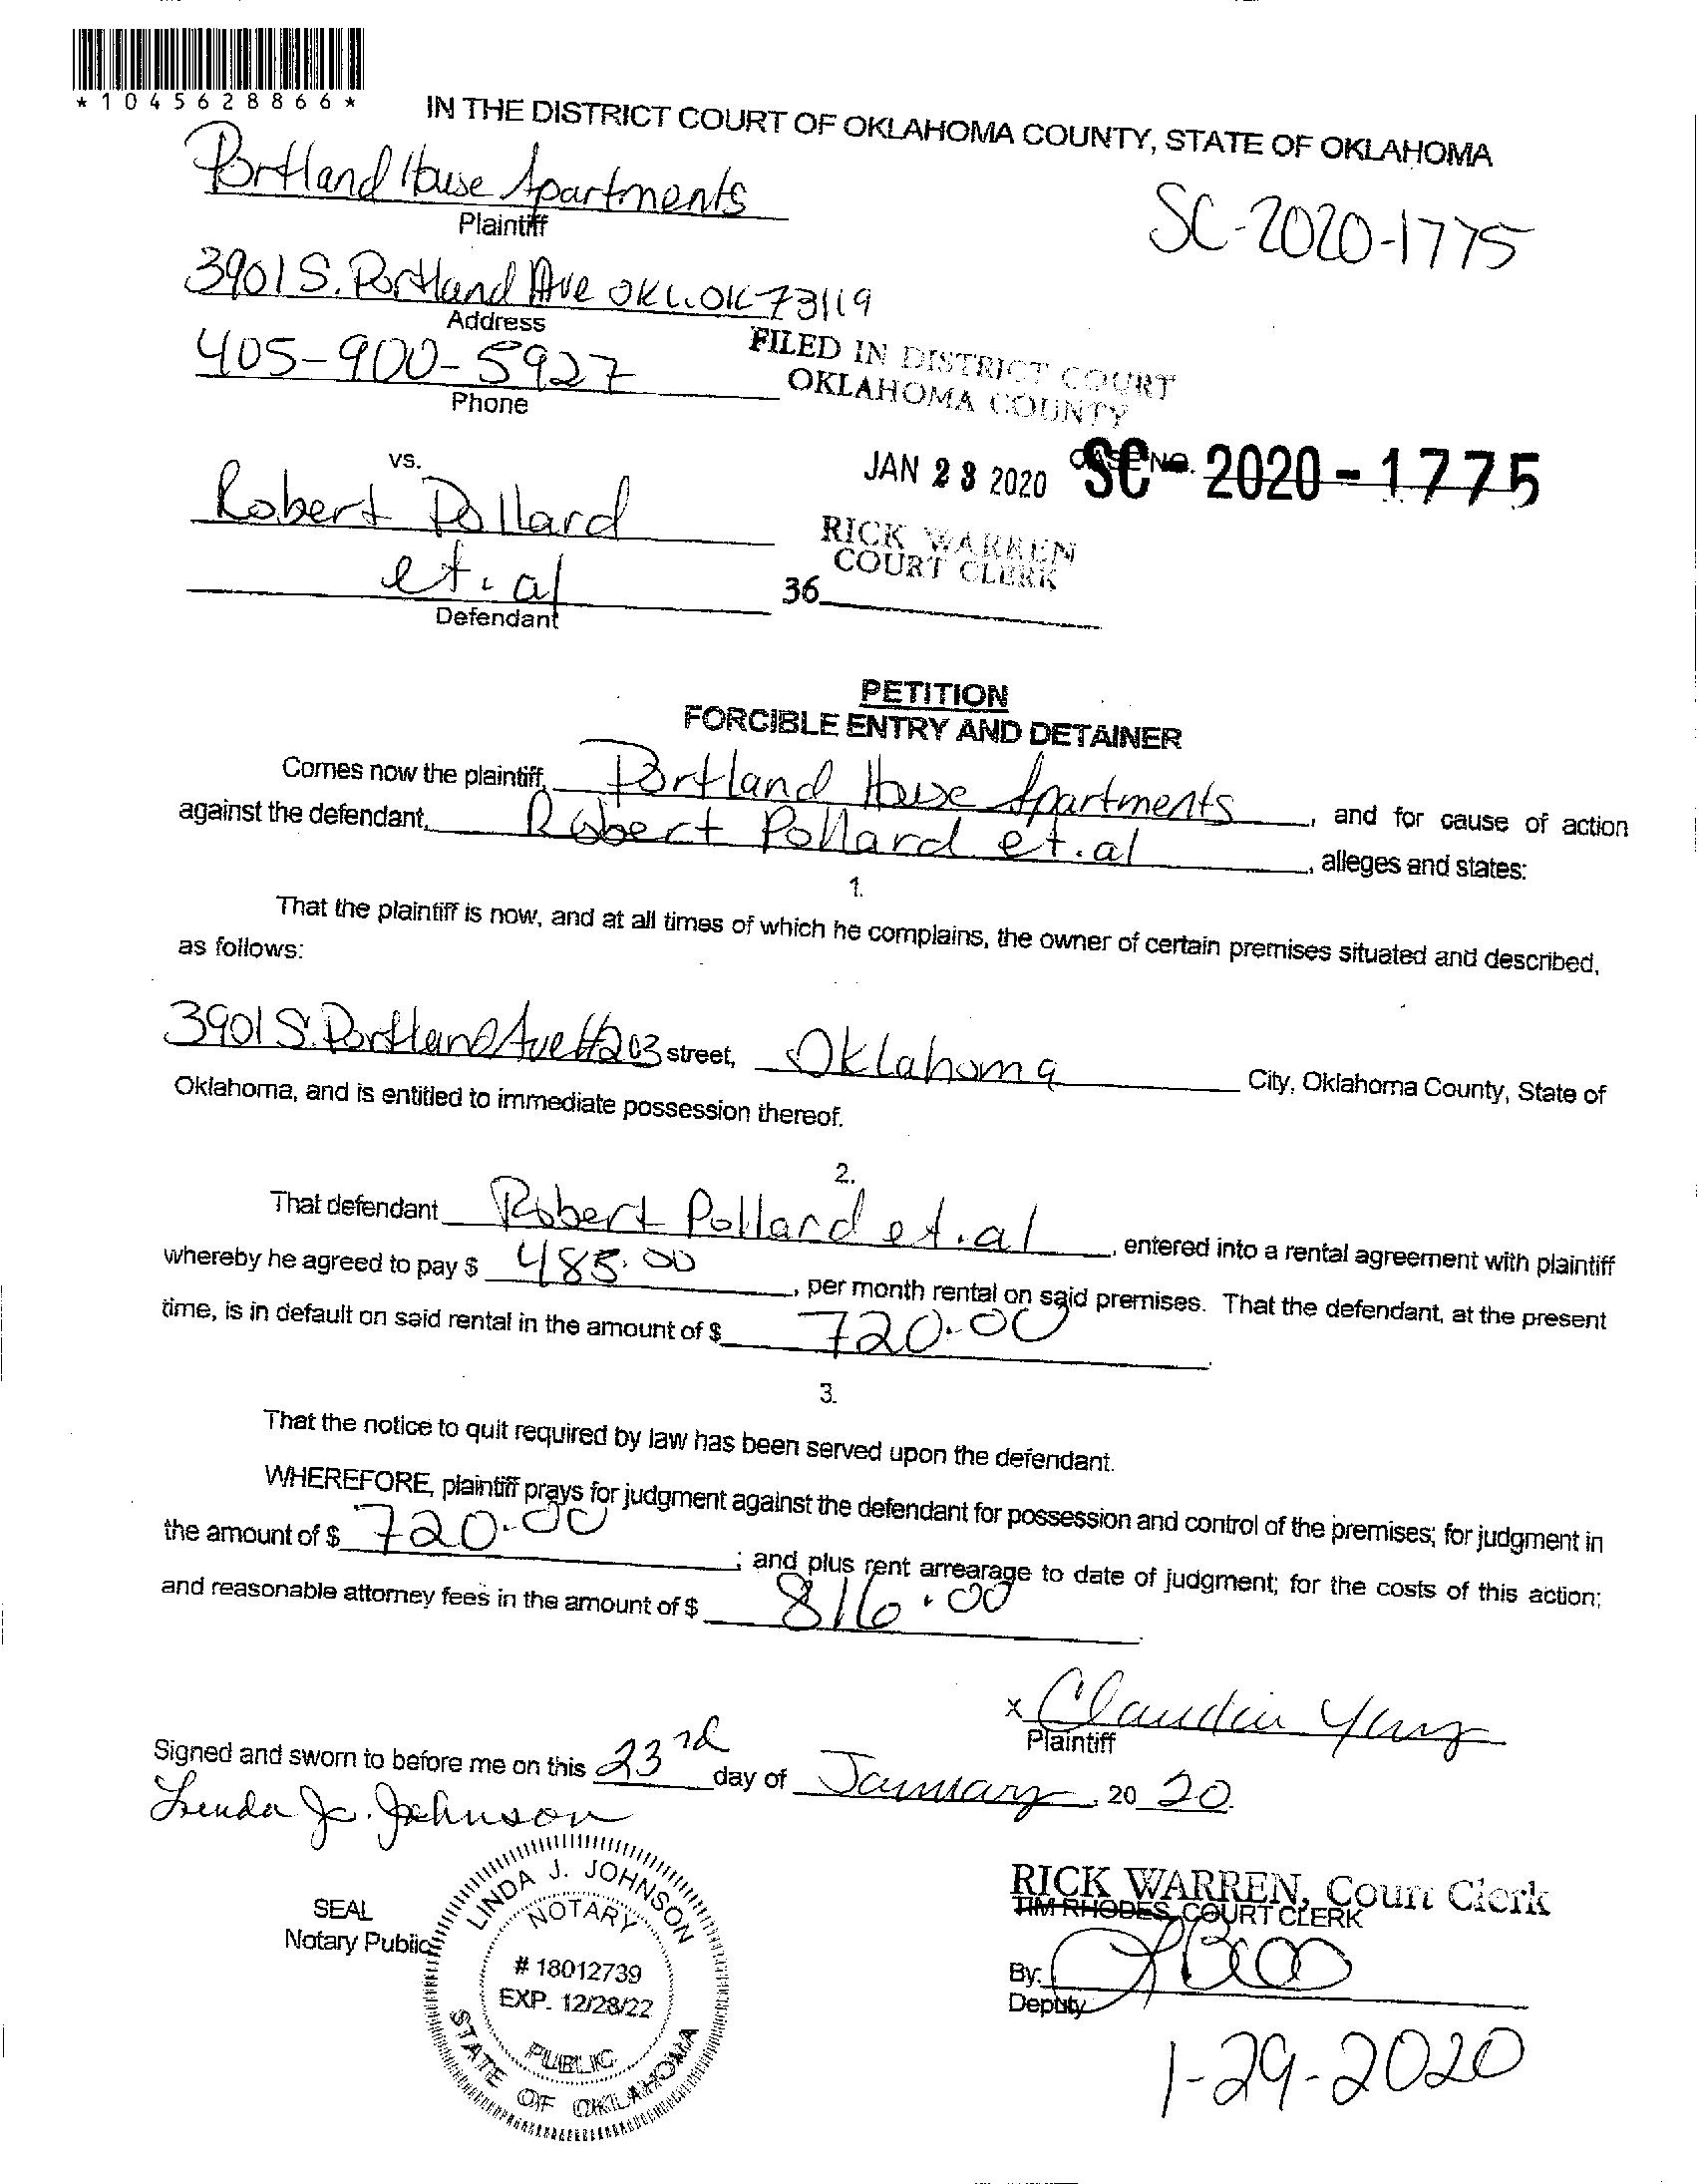 *1045628866*
IN THE DISTRICT COURT OF OKLAHOMA COUNTY, STATE OF OKLAHOMA
Portland House Apartments
Plaintiff
SC-2020-1775
3901 S. Portland Ave OKC. OK 73119
Address
405-900-5927
Phone
FILED IN DISTRICT COURT
OKLAHOMA COUNTY
vs.
JAN 23 2020
CASE NO.
SC-2020-1775
Robert Pollard
RICK WARREN
COURT CLERK
et. al
36
Defendant
PETITION
FORCIBLE ENTRY AND DETAINER
Comes now the plaintiff, Portland House Apartments, and for cause of action
against the defendant, Robert Pollard et. al, alleges and states:
1.
That the plaintiff is now, and at all times of which he complains, the owner of certain premises situated and described,
as follows:
3901 S. Portland Ave #203 street, Oklahoma City, Oklahoma County, State of
Oklahoma, and is entitled to immediate possession thereof.
2.
That defendant Robert Pollard et. al, entered into a rental agreement with plaintiff
whereby he agreed to pay $ 485.00, per month rental on said premises. That the defendant, at the present
time, is in default on said rental in the amount of $ 720.00.
3.
That the notice to quit required by law has been served upon the defendant.
WHEREFORE, plaintiff prays for judgment against the defendant for possession and control of the premises; for judgment in
the amount of $ 720.00; and plus rent arrearage to date of judgment; for the costs of this action;
and reasonable attorney fees in the amount of $ 816.00.
x Claudia
Plaintiff
Signed and sworn to before me on this 23rd day of January, 20 20.
Linda J. Johnson
SEAL
Notary Public
LINDA J. JOHNSON
NOTARY
# 18012739
EXP. 12/28/22
PUBLIC
STATE OF OKLAHOMA
RICK WARREN, Court Clerk
TIM RHODES, COURT CLERK
By:
Deputy
1-29-2020